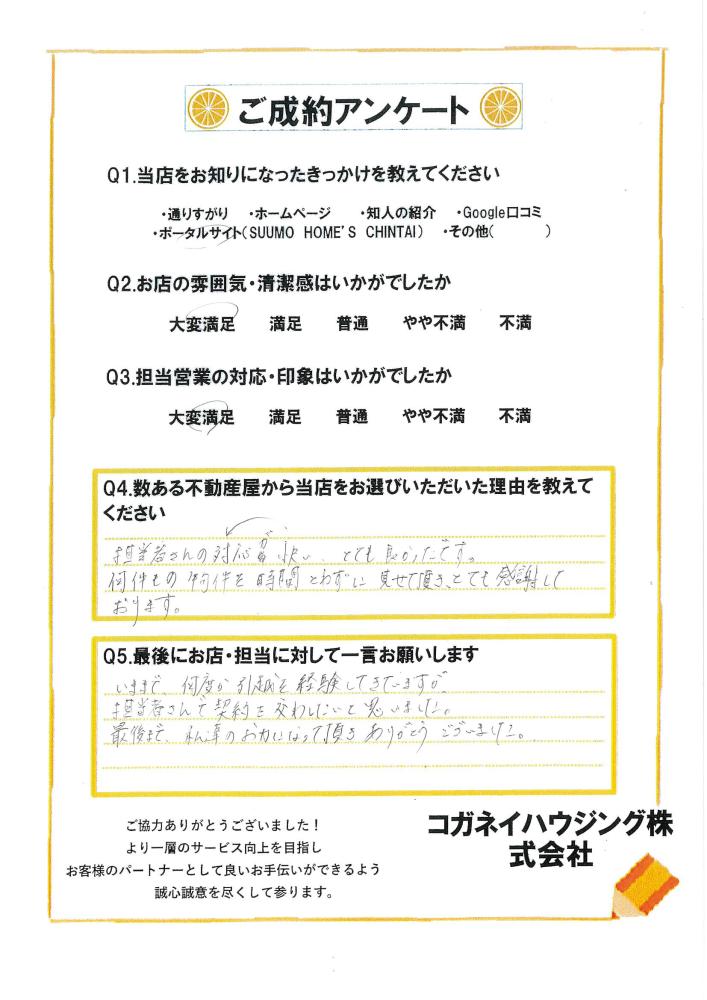 ご成約アンケート
Q1.当店をお知りになったきっかけを教えてください
・通りすがり ・ホームページ ・知人の紹介 ・Google口コミ
・ポータルサイト(SUUMO HOME'S CHINTAI) ・その他( )
Q2.お店の雰囲気・清潔感はいかがでしたか
大変満足 満足 普通 やや不満 不満
Q3.担当営業の対応・印象はいかがでしたか
大変満足 満足 普通 やや不満 不満
Q4.数ある不動産屋から当店をお選びいただいた理由を教えて
ください
担当者さんの対応が 、とても良かったです。
何件もの物件を時間とわずに見せて頂き、とても感謝して
おります。
Q5.最後にお店・担当に対して一言お願いします
いままで、何度か引越を経験してきてますが、
担当者さんで契約を交わしたいと思いました。
最後まで、私達のお力になって頂きありがとうございました。
ご協力ありがとうございました！
より一層のサービス向上を目指し
お客様のパートナーとして良いお手伝いができるよう
誠心誠意を尽くして参ります。
コガネイハウジング株
式会社